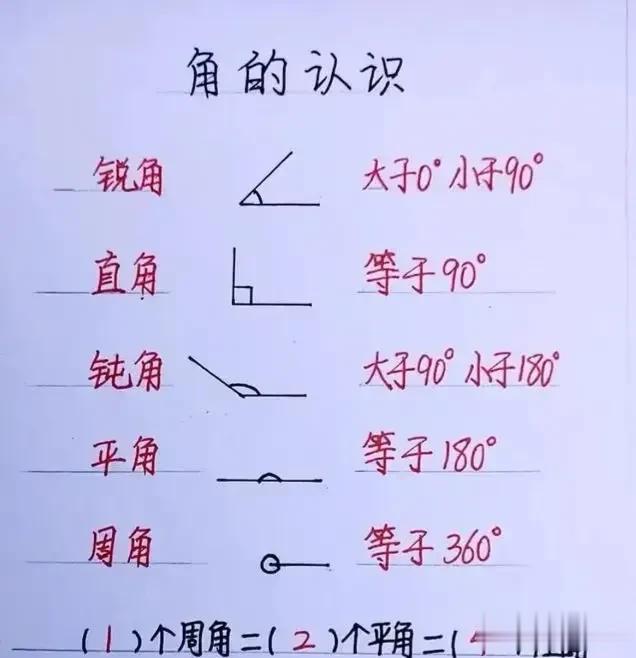 角的认识
锐角 大于0° 小于90°
直角 等于90°
钝角 大于90° 小于180°
平角 等于180°
周角 等于360°
(1)个周角=(2)个平角=(